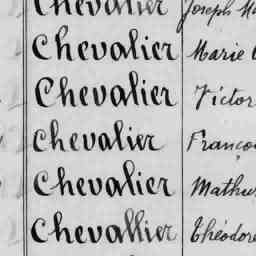 Chevalier Joseph Ma
Chevalier Marie
Chevalier Victor
Chevalier Franço
Chevalier Mathur
Chevallier Théodore